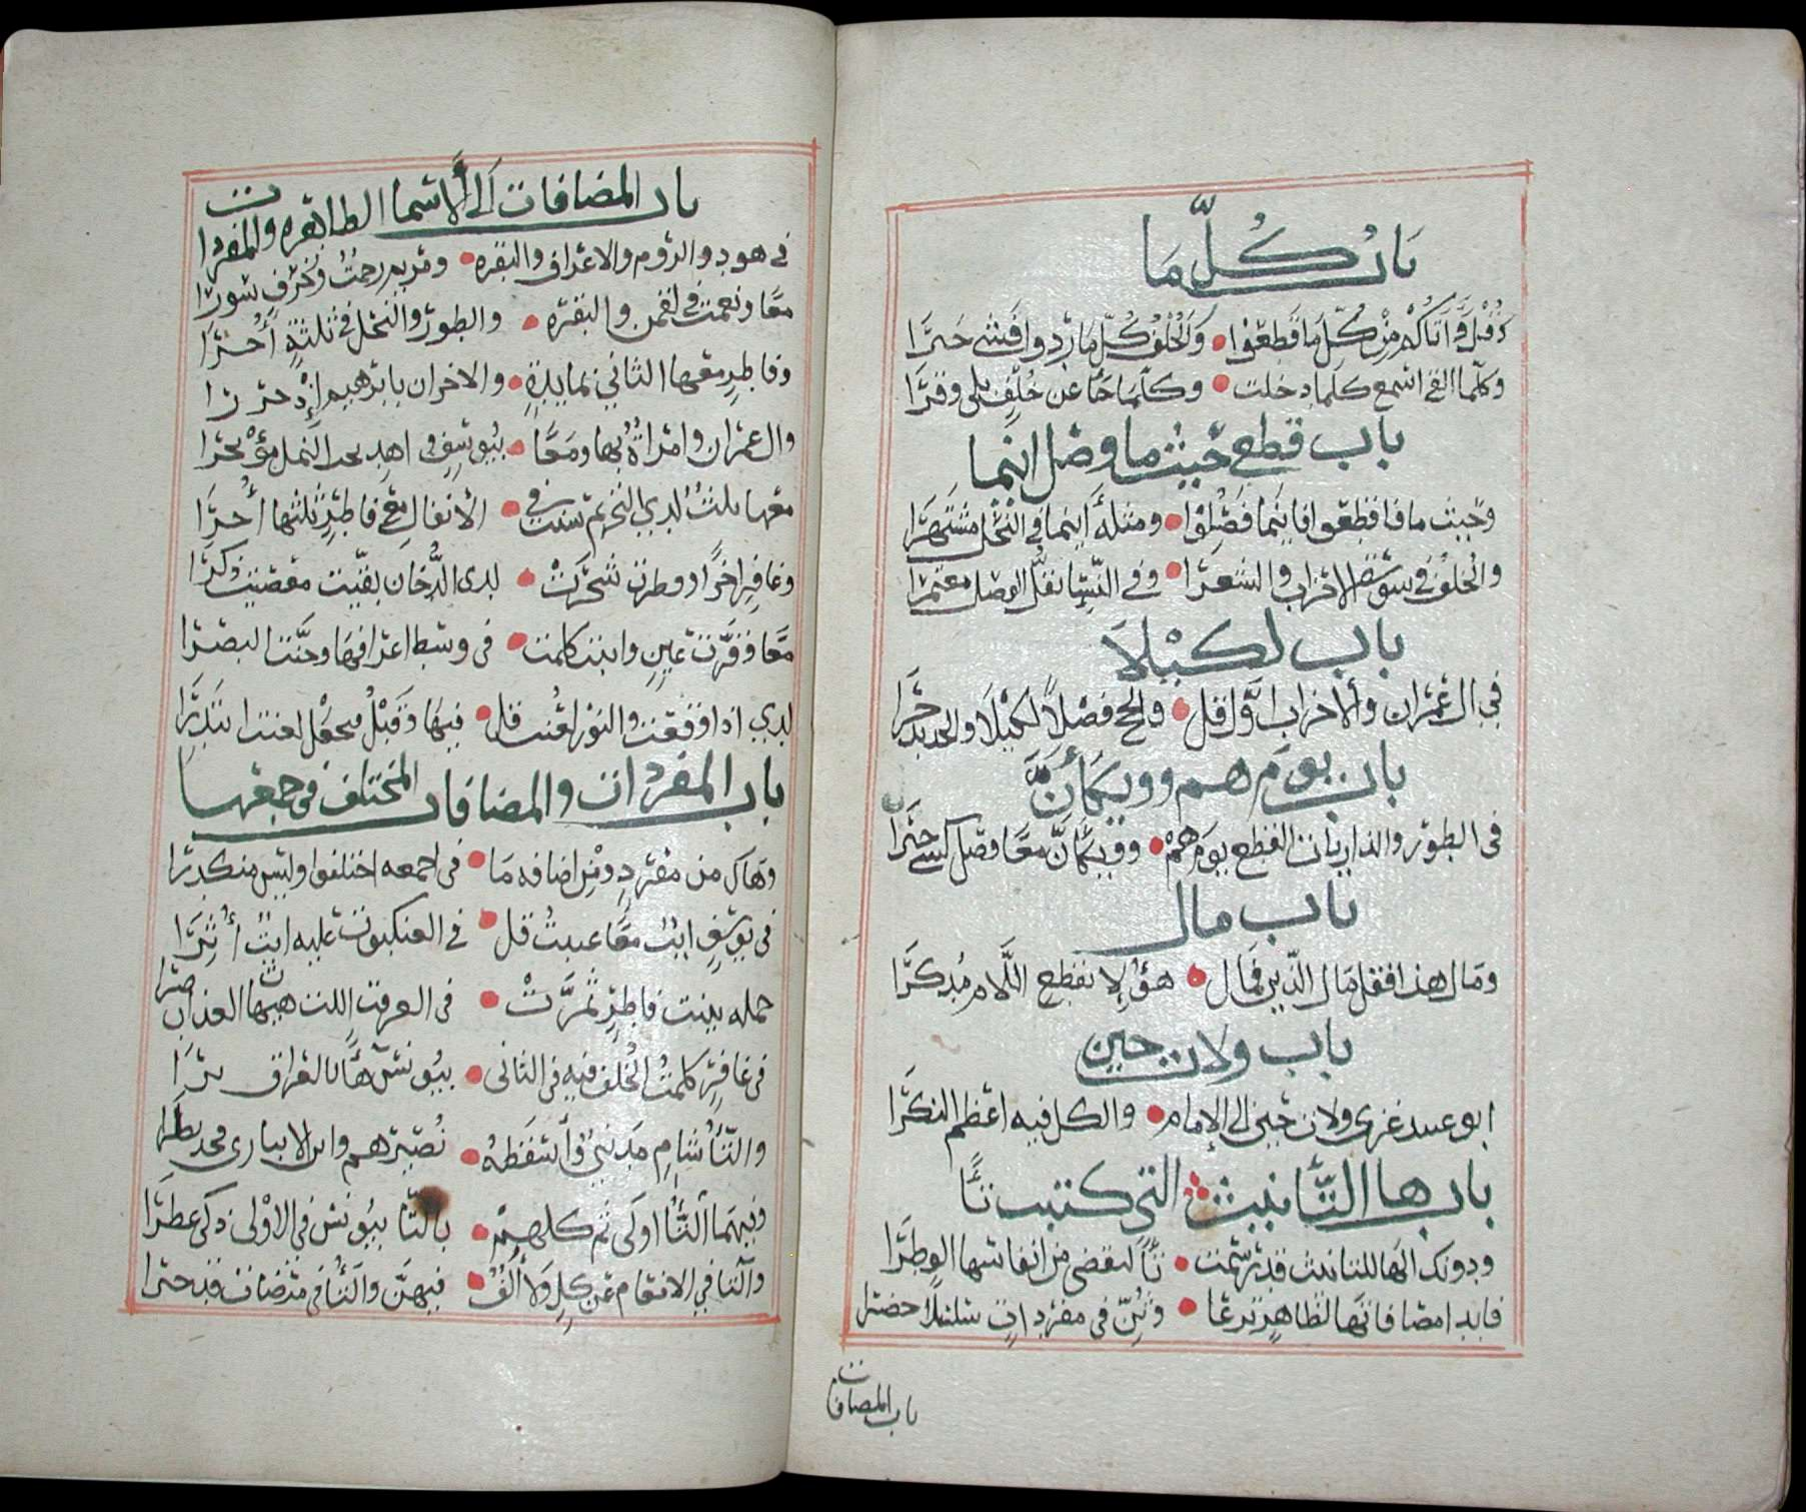 باب كُلِّ مَا
وَقُلْ وَآتَاكُمُ مِنْ كُلِّ مَا قَطَعُوا • وَالْخُلْفُ كُلَّمَا رُدُّوا فَشَى خَبَرَا
وكلما القي اسمع كلما دخلت • وكلما جا عن خُلْفٍ يلي وقرَا
باب قطع حيث ما ووصل اينما
وحيث ما فاقطعوا فاينما فصِلُوا • ومثله اينما في النحل مشتهرا
والخلف في سورة الاحزاب والشعرا • وفي النسا يقلّ الوصل معتمرا
باب لكيلا
في ال عمران والاحزاب اوّل قل • والحج فصلاً لكيلا والحديد جَرَا
باب يوم هم وويكأنّ
في الطور والذاريات القطع يوم هُمْ • وويكأنّ معًا وصل كسى حبرا
باب مال
ومال هذا فقل مال الذين فمال • هؤلا بقطع اللام مدكرا
باب ولات حين
ابو عبيد عزى ولا تحين الى الإمام • والكل فيه اعظم النكرا
باب ها التأنيث التي كتبت تاً
ودونك الها للتانيث قد رسمت • تاً لتقضي من انفاسها الوطرا
فابدا مضافاتها لظاهرٍ ترعا • وثنّ في مفرداتٍ سلسلاً خضرا
باب المضافات
باب المضافات الى الاسما الظاهره والمفردات
في هود والروم والاعراف والبقره • ومريم رحمتُ وزخرفٍ سبرا
معًا ونعمت في لقمن والبقره • والطور والنحل في ثلثةٍ أُخَرا
وفاطرٍ معها الثاني بمايدةٍ • والاخران بابرهيم اذ حزرا
وال عمران وامراة بها ومعًا • بيوسفٍ واهدِ تحت النمل مؤتجرا
معها ثلث لدي التحريم سنت في • الأنفال مع فاطرٍ ثلثها أُخرا
وغافر اخرًا وفطرت شجرت • لدى الدّخان بقيّت معصيت ذكرا
معًا وقرّت عينٍ وابنت كلمت • في وسط اعرافها وجنّت البصرا
لدي اذا وقعت والنور لعنت قل • فيها وقبل فنجعل لعنت ابتدرا
باب المفردات والمضافات المختلف في جمعها
وهاك من مفردٍ ومن اضافه مَا • في جمعه اختلفوا وليس منكدرا
في يوسفٍ ايت معًا غيبت قل • في العنكبوت عليه ايتٌ أُثِرَا
جمله بينت فاطرٍ ثمرت • في الغرفت اللت هيهات العذاب صرا
في غافر كلمت الخلف فيه وفي الثاني • بيونس هآ بالعراق يرا
والتا شام مدني وأسقطه • نُصيرهم وابن الانباري فجد نظرا
وفيهما التا اولى ثم كلهم • بالتا بيونس في الاولى ذكى عطرا
والتا في الانعام عن كلٍ ولا ألف • فيهنّ والتا في مرضات قد حبرا